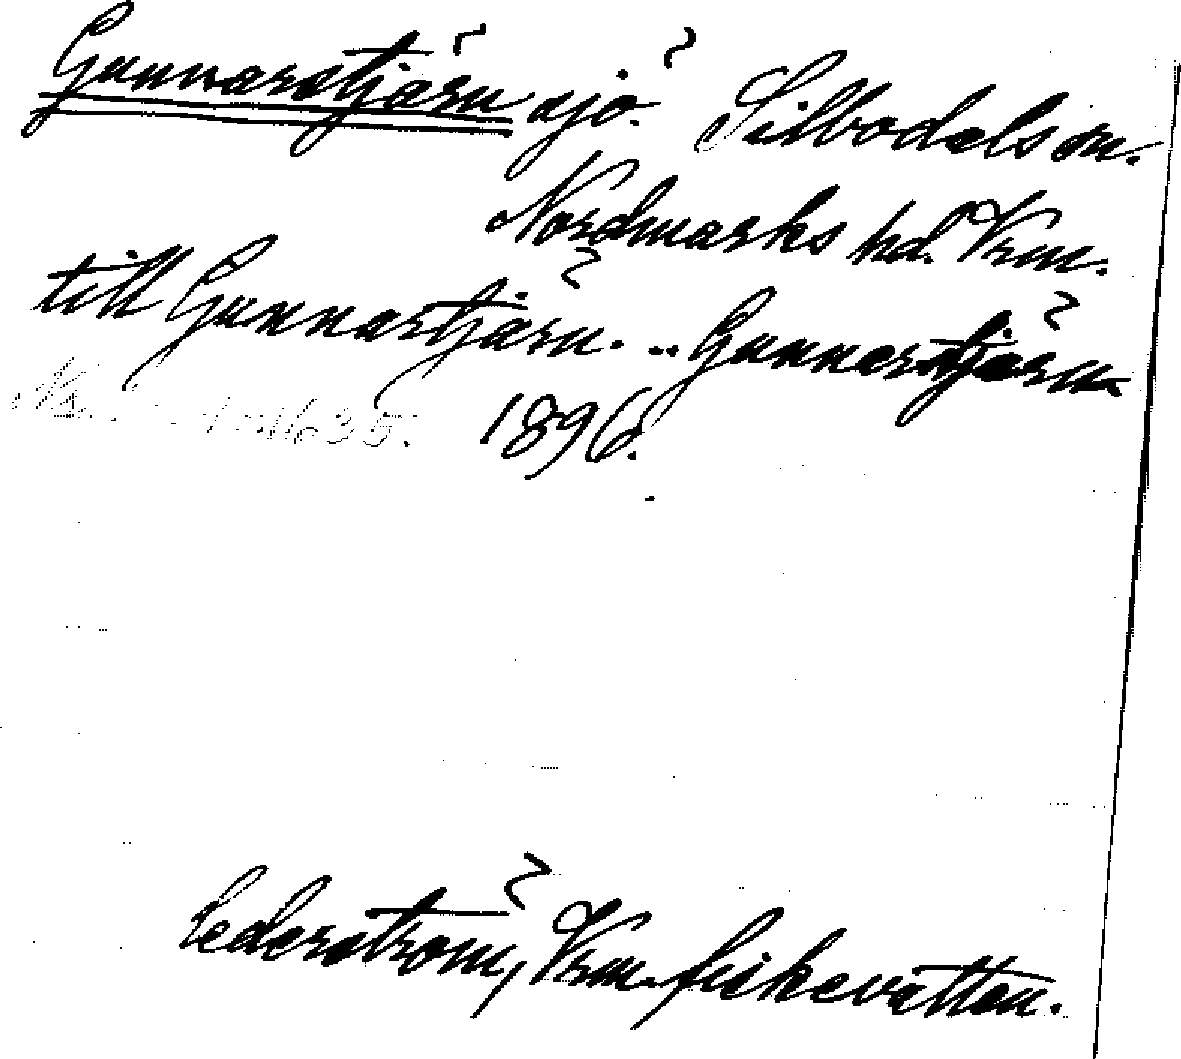 Gunnarstjärn sjö. Silbodals sn.
Nordmarks hd. Vrm.
till Gunnarstjärn. .. Gunnarstjärn
1896.
Cederström, Vrm. fiskevatten.